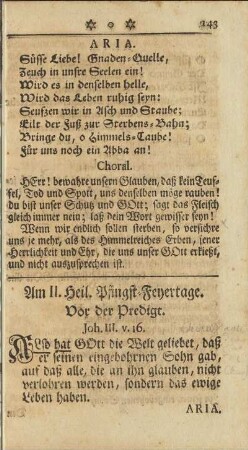 ✡ o ✡ 243
ARIA.
Süsse Liebe! Gnaden-Quelle,
Zeuch in unsre Seelen ein!
Wird es in denselben helle,
Wird das Leben ruhig seyn:
Seufzen wir in Asch und Staube;
Eilt der Fuß zur Sterbens-Bahn;
Bringe du, o Himmels-Taube!
Für uns noch ein Abba an!
Choral.
HErr! bewahre unsern Glauben, daß kein Teuf-
fel, Tod und Spott, uns denselben möge rauben!
du bist unser Schutz und GOtt; sagt das Fleisch
gleich immer nein; laß dein Wort gewisser seyn!
Wenn wir endlich sollen sterben, so versichre
uns je mehr, als des Himmelreiches Erben, jener
Herrlichkeit und Ehr, die uns unser GOtt erkiest,
und nicht auszusprechen ist.
Am II. Heil. Pfingst-Feyertage.
Vor der Predigt.
Joh. III. v. 16.
ALso hat GOtt die Welt geliebet, daß
er seinen eingebohrnen Sohn gab,
auf daß alle, die an ihn glauben, nicht
verlohren werden, sondern das ewige
Leben haben.
ARIA.